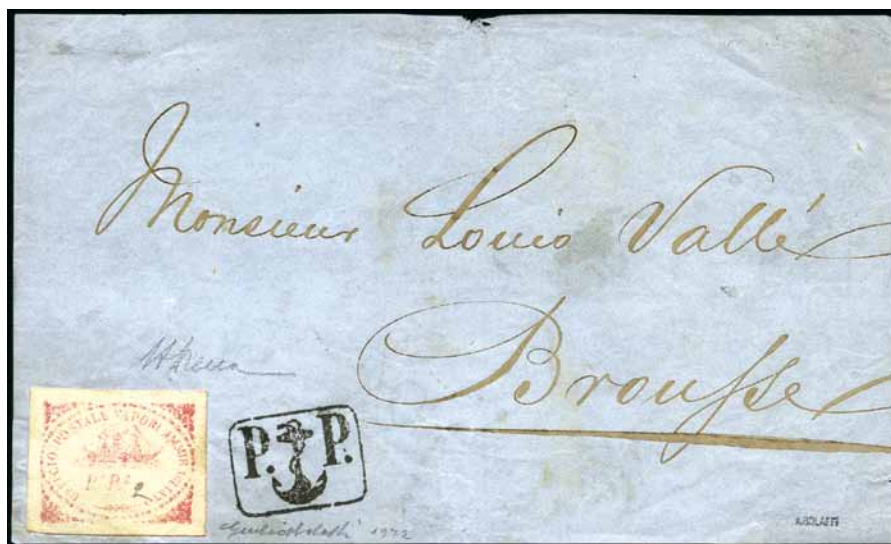 Monsieur Louis Vallé
Brousse
UFFICIO POSTALE VAPORI
P. P. 2
P. P.
1972
A.BOLAFFI